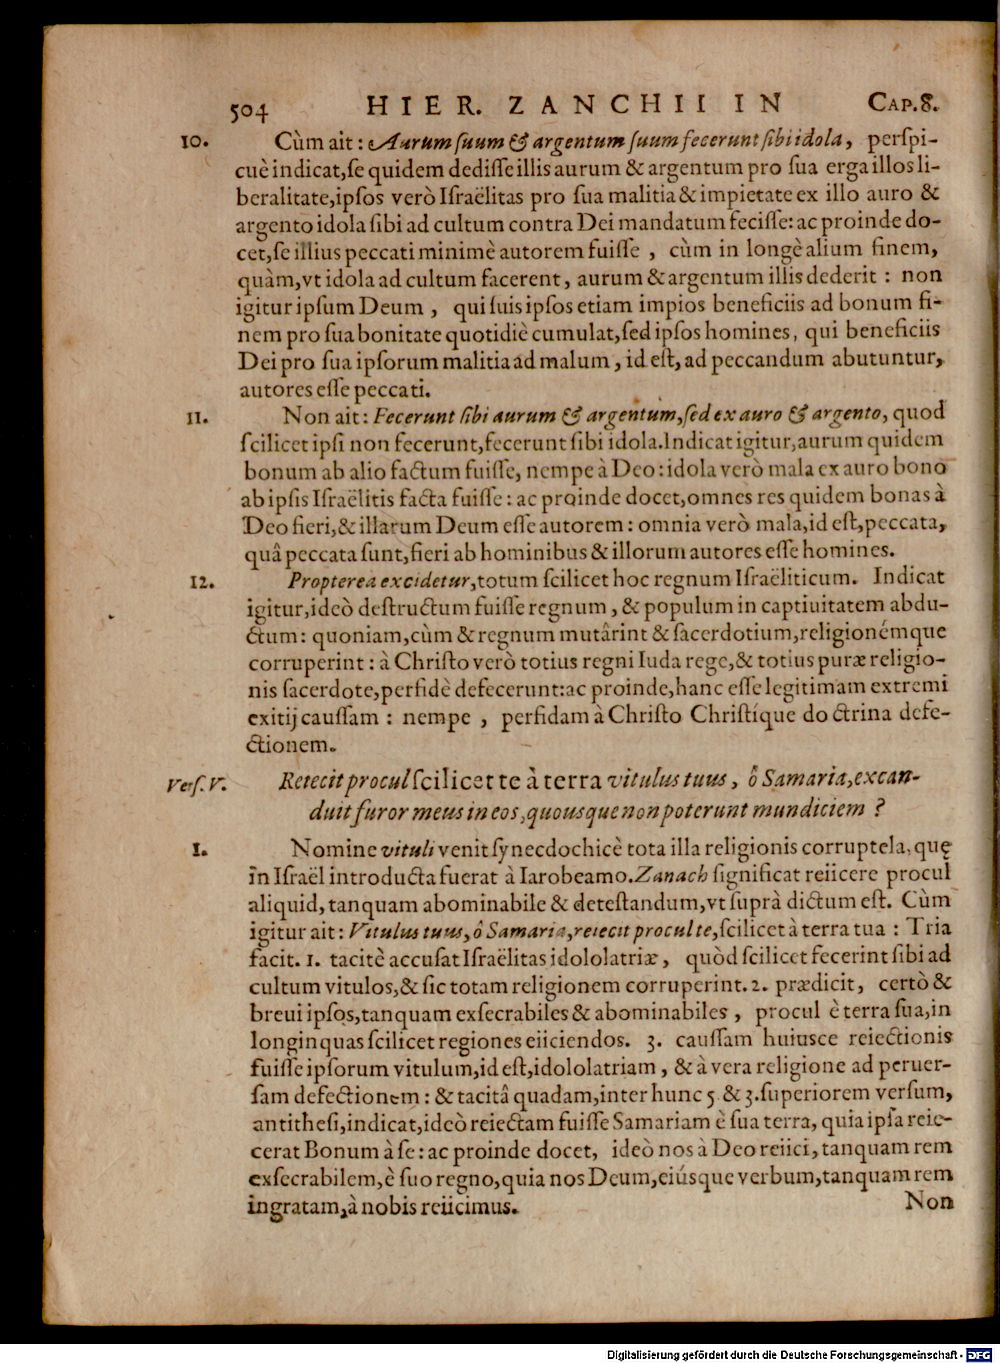 504 HIER. ZANCHII IN CAP. 8.
10. Cùm ait: Aurum ſuum & argentum ſuum fecerunt ſibi idola, perſpi-
cuè indicat, ſe quidem dediſſe illis aurum & argentum pro ſua erga illos li-
beralitate, ipſos verò Iſraëlitas pro ſua malitia & impietate ex illo auro &
argento idola ſibi ad cultum contra Dei mandatum feciſſe: ac proinde do-
cet, ſe illius peccati minimè autorem fuiſſe, cùm in longè alium finem,
quàm, vt idola ad cultum facerent, aurum & argentum illis dederit: non
igitur ipſum Deum, qui ſuis ipſos etiam impios beneficiis ad bonum fi-
nem pro ſua bonitate quotidiè cumulat, ſed ipſos homines, qui beneficiis
Dei pro ſua ipſorum malitia ad malum, id eſt, ad peccandum abutuntur,
autores eſſe peccati.
11. Non ait: Fecerunt ſibi aurum & argentum, ſed ex auro & argento, quod
ſcilicet ipſi non fecerunt, fecerunt ſibi idola. Indicat igitur, aurum quidem
bonum ab alio factum fuiſſe, nempe à Deo: idola verò mala ex auro bono
ab ipſis Iſraëlitis facta fuiſſe: ac proinde docet, omnes res quidem bonas à
Deo fieri, & illarum Deum eſſe autorem: omnia verò mala, id eſt, peccata,
quâ peccata ſunt, fieri ab hominibus & illorum autores eſſe homines.
12. Propterea excidetur, totum ſcilicet hoc regnum Iſraëliticum. Indicat
igitur, ideò deſtructum fuiſſe regnum, & populum in captiuitatem abdu-
ctum: quoniam, cùm & regnum mutârint & ſacerdotium, religionémque
corruperint: à Chriſto verò totius regni Iuda rege, & totius puræ religio-
nis ſacerdote, perfidè defecerunt: ac proinde, hanc eſſe legitimam extremi
exitij cauſſam: nempe, perfidam à Chriſto Chriſtíque doctrina defe-
ctionem.
Verſ. V. Reiecit procul ſcilicet te à terra vitulus tuus, ô Samaria, excan-
duit furor meus in eos, quousque non poterunt mundiciem?
1. Nomine vituli venit ſynecdochicè tota illa religionis corruptela, quę
in Iſraël introducta fuerat à Iarobeamo. Zanach ſignificat reiicere procul
aliquid, tanquam abominabile & deteſtandum, vt ſuprà dictum eſt. Cùm
igitur ait: Vitulus tuus, ô Samaria, reiecit procul te, ſcilicet à terra tua: Tria
facit. 1. tacitè accuſat Iſraëlitas idololatriæ, quòd ſcilicet fecerint ſibi ad
cultum vitulos, & ſic totam religionem corruperint. 2. prædicit, certò &
breui ipſos, tanquam exſecrabiles & abominabiles, procul è terra ſua, in
longinquas ſcilicet regiones eiiciendos. 3. cauſſam huiusce reiectionis
fuiſſe ipſorum vitulum, id eſt, idololatriam, & à vera religione ad peruer-
ſam defectionem: & tacitâ quadam, inter hunc 5 & 3. ſuperiorem verſum,
antitheſi, indicat, ideò reiectam fuiſſe Samariam è ſua terra, quia ipſa reie-
cerat Bonum à ſe: ac proinde docet, ideò nos à Deo reiici, tanquam rem
exſecrabilem, è ſuo regno, quia nos Deum, eiúsque verbum, tanquam rem
ingratam, à nobis reiicimus.
Non
Digitalisierung gefördert durch die Deutsche Forschungsgemeinschaft - DFG